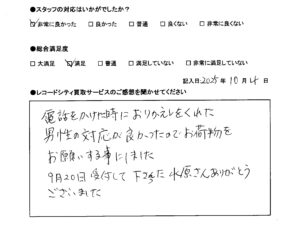 ●スタッフの対応はいかがでしたか?
☑非常に良かった □良かった □普通 □良くない □非常に良くない
●総合満足度
□大満足 ☑満足 □普通 □満足していない □非常に満足していない
記入日2025年10月14日
●レコードシティ買取サービスのご感想を聞かせてください
電話をかけた時におりかえしをくれた
男性の対応が良かったのでお荷物を
お願いする事にしました
9月20日受付して下さった 水原さんありがとう
ございました